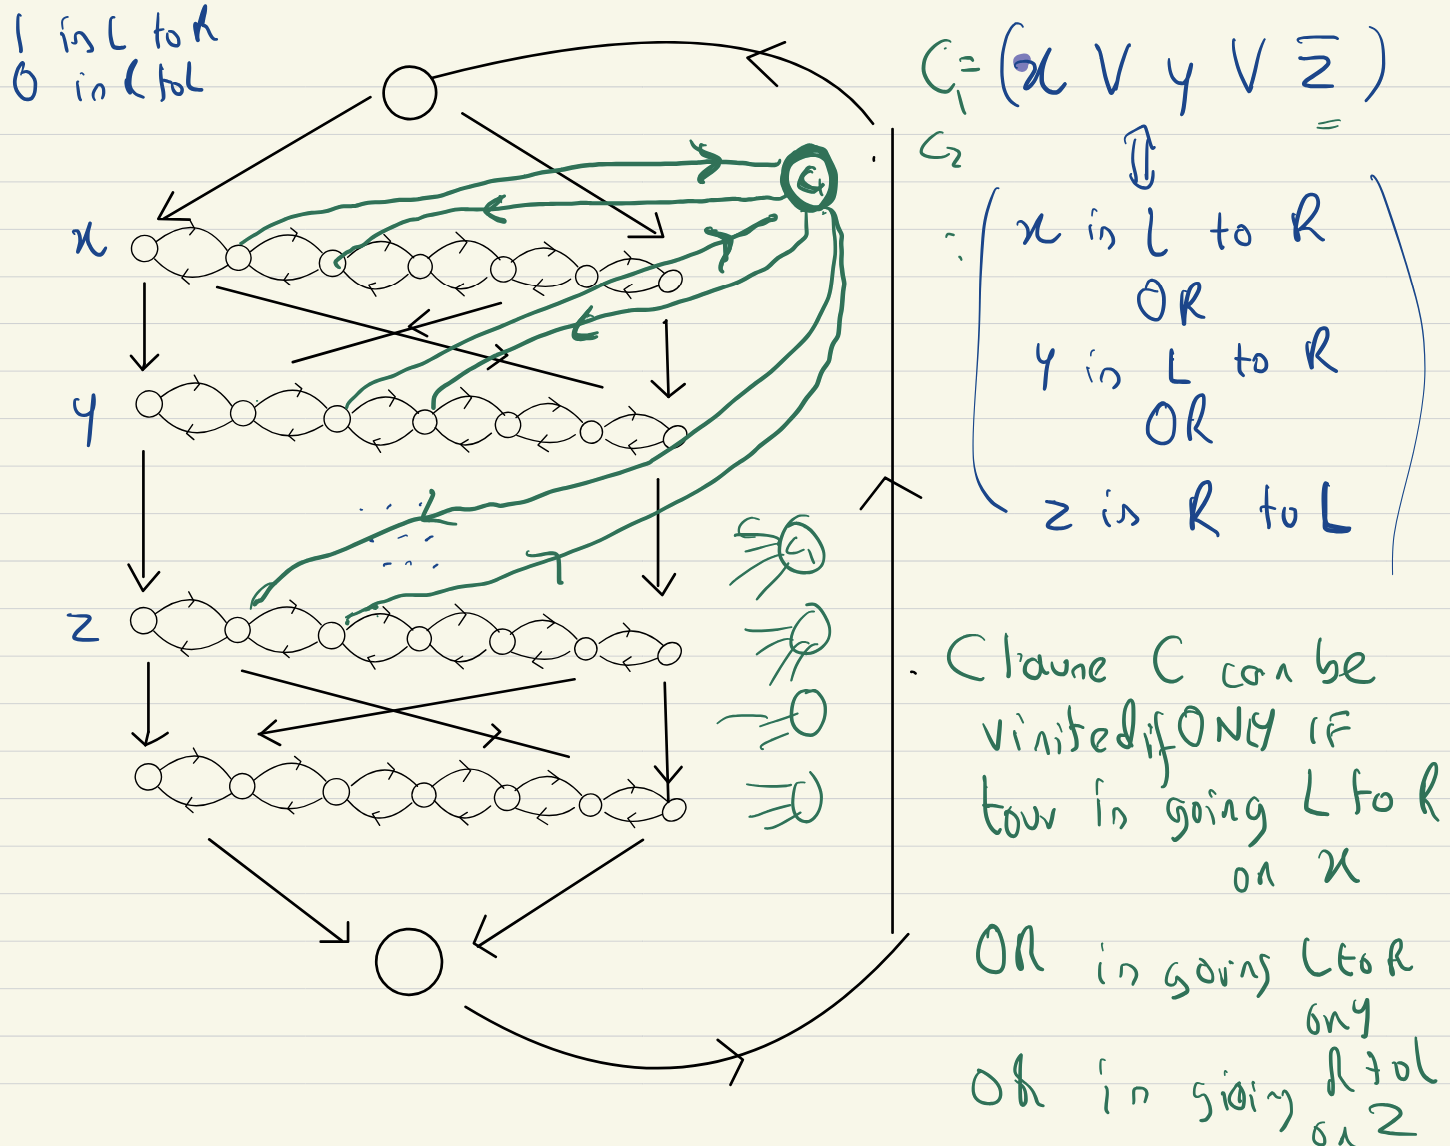 1 is L to R
0 is R to L
x
y
z
C₁
C₁
C₁ = (x ∨ y ∨ z̅)
⇕
C₂
x is L to R
OR
y is L to R
OR
z is R to L
Clause C can be
visited if ONLY IF
tour is going L to R
on x
OR is going L to R
on y
OR is going R to L
on z